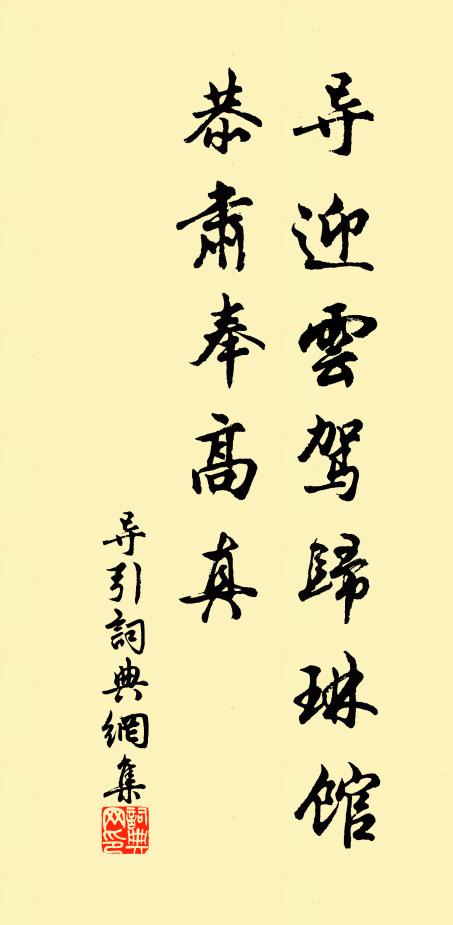 导迎雲駕歸琳館
恭肅奉高真
导引詞典網集
詞典网印